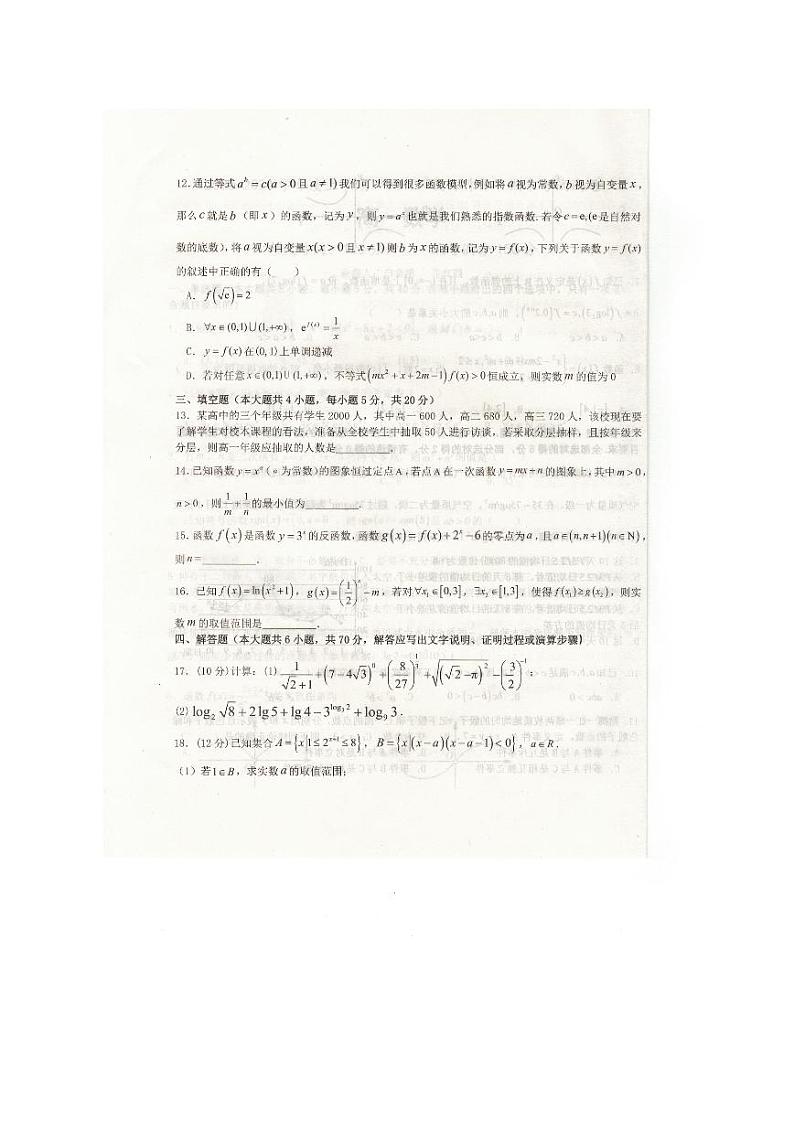 12.通过等式 a^b = c(a > 0 且 a ≠ 1) 我们可以得到很多函数模型,例如将 a 视为常数, b 视为自变量 x,
那么 c 就是 b (即 x) 的函数, 记为 y, 则 y = a^x 也就是我们熟悉的指数函数.若令 c = e,(e 是自然对
数的底数), 将 a 视为自变量 x(x > 0 且 x ≠ 1) 则 b 为 x 的函数, 记为 y = f(x), 下列关于函数 y = f(x)
的叙述中正确的有 ( )
A. f(√e) = 2
B. ∀x∈(0,1)∪(1,+∞), e^{f(x)} = 1/x
C. y = f(x) 在(0,1)上单调递减
D. 若对任意 x∈(0,1)∪(1,+∞), 不等式 (mx² + x + 2m − 1) f(x) > 0 恒成立, 则实数 m 的值为 0
三、填空题 (本大题共 4 小题, 每小题 5 分, 共 20 分)
13. 某高中的三个年级共有学生 2000 人, 其中高一 600 人, 高二 680 人, 高三 720 人, 该校现在要
了解学生对校本课程的看法, 准备从全校学生中抽取 50 人进行访谈, 若采取分层抽样, 且按年级来
分层, 则高一年级应抽取的人数是________.
14.已知函数 y = x^α (α 为常数)的图象恒过定点 A, 若点 A 在一次函数 y = mx + n 的图象上,其中 m > 0,
n > 0, 则 1/m + 1/n 的最小值为________.
15. 函数 f(x) 是函数 y = 3^x 的反函数, 函数 g(x) = f(x) + 2^x − 6 的零点为 a, 且 a∈(n,n+1)(n∈N),
则 n = ________.
16. 已知 f(x) = ln(x² + 1), g(x) = (1/2)^x − m, 若对 ∀x₁∈[0,3], ∃x₂∈[1,3], 使得 f(x₁) ≥ g(x₂), 则实
数 m 的取值范围是________.
四、解答题 (本大题共 6 小题, 共 70 分, 解答应写出文字说明、证明过程或演算步骤)
17. (10 分)计算: (1) 1/(√2+1) + (7 − 4√3)^0 + (8/27)^{1/3} + √((√2 − π)^2) − (3/2)^{-1};
(2) log₂ √8 + 2lg5 + lg4 − 3^{log₃2} + log₉3.
18. (12 分)已知集合 A = {x|1 ≤ 2^{x+1} ≤ 8}, B = {x|(x − a)(x − a − 1) < 0}, a∈R.
(1) 若 1∈B, 求实数 a 的取值范围;